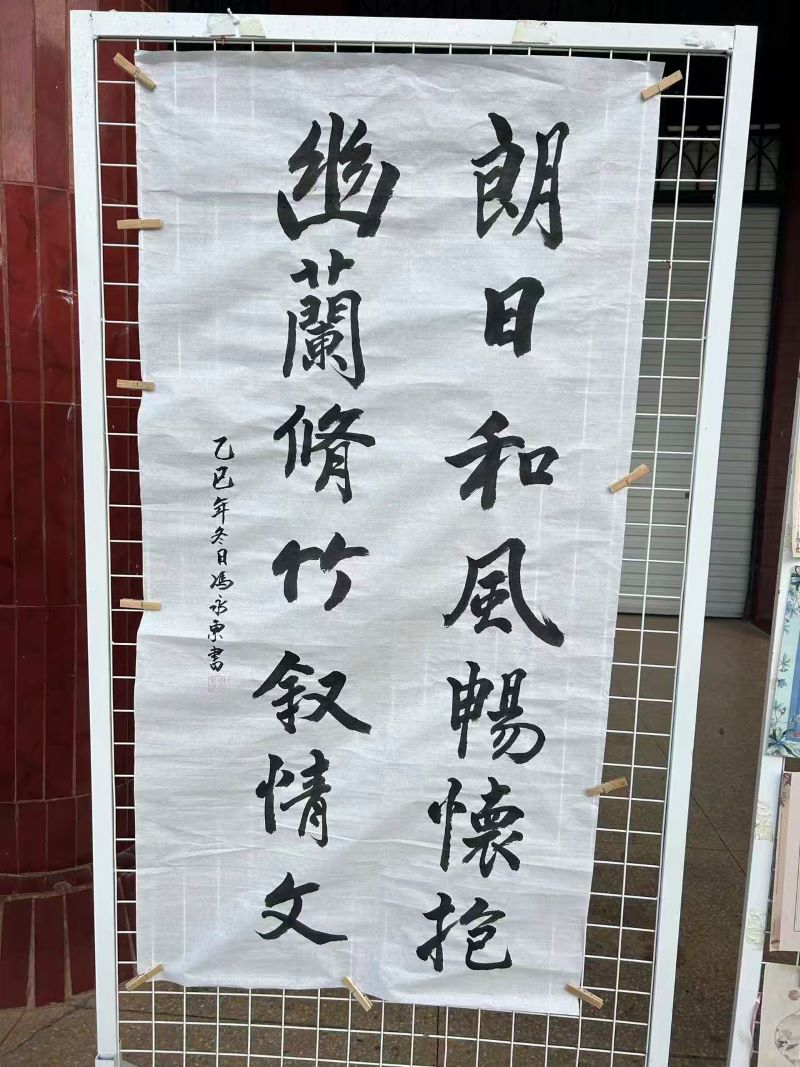 朗日和風暢懷抱
幽蘭脩竹叙情文
乙巳年冬日馮永東書